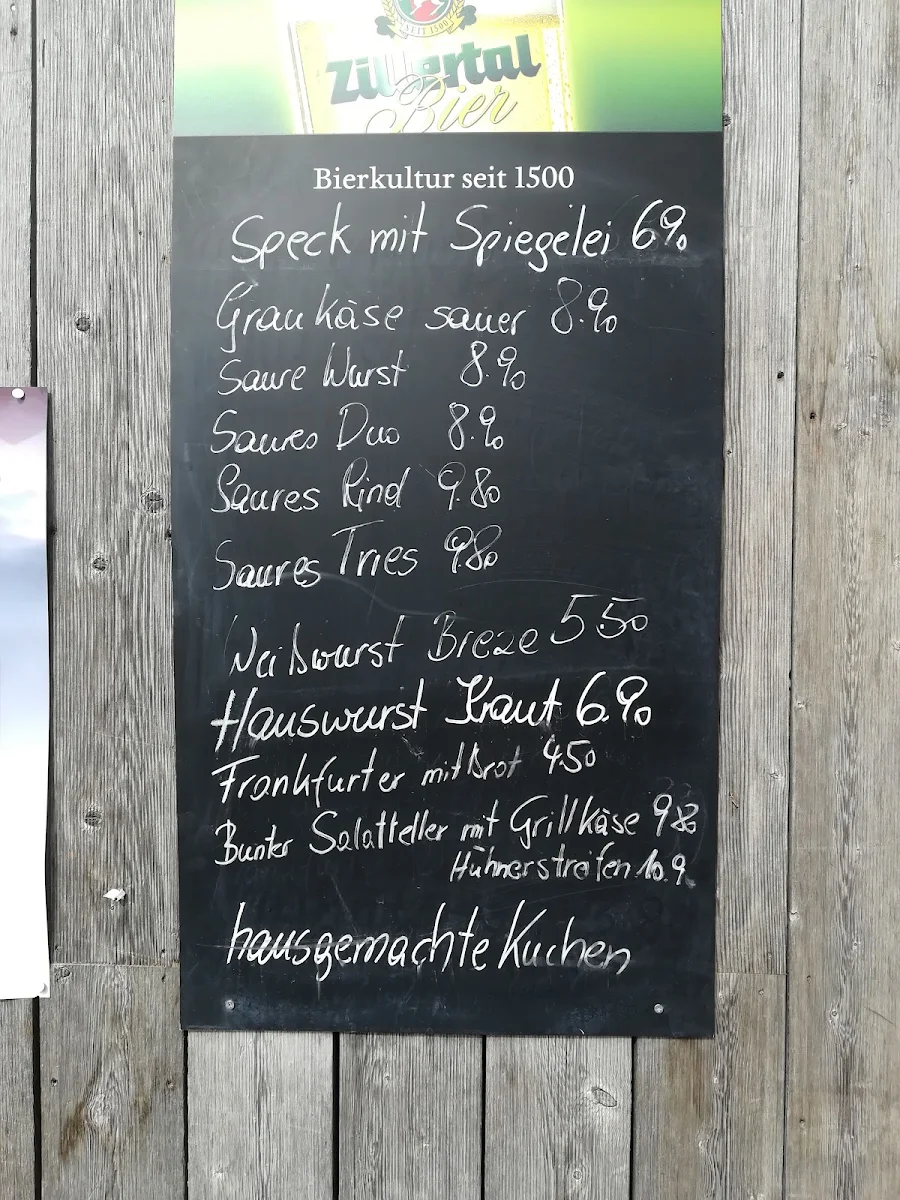 SEIT 1500
Zillertal
Bier
Bierkultur seit 1500
Speck mit Spiegelei 6.90
Graukäse sauer 8.90
Saure Wurst 8.90
Saures Duo 8.90
Saures Rind 9.80
Saures Tries 9.80
Weißwurst Breze 5.50
Hauswurst Kraut 6.90
Frankfurter mit Brot 4.50
Bunter Salatteller mit Grillkäse 9.80
Hühnerstreifen 10.90
hausgemachte Kuchen